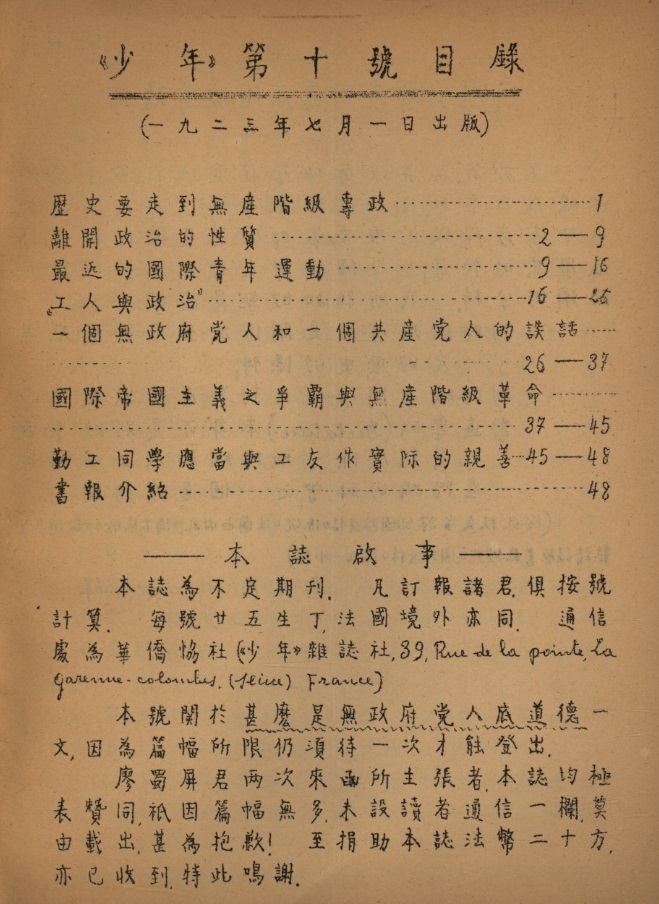 《少年》第十號目錄
(一九二三年七月一日出版)
歷史要走到無産階級專政……………………1
離開政治的性質……………………2—9
最近的國際青年運動……………………9—16
"工人與政治"……………………16—26
一個無政府党人和一個共産党人的談話……
……26—37
國際帝國主義之爭霸與無産階級革命……
……………………37—45
勤工同學應當與工友作實际的親善…45—48
書報介紹……………………48
—— 本誌啟事 ——
本誌為不定期刊. 凡訂報諸君, 俱按號
計算. 每號廿五生丁, 法國境外亦同. 通信
處為華僑協社《少年》雜誌社, 39, Rue de la pointe, La
Garenne-colombes, (Seine) France)
本號開於甚麽是無政府党人底道德一
文, 因為篇幅所限仍須待一次才能登出.
廖蜀屏君兩次來函所主張者, 本誌均極
表贊同, 祇因篇幅無多, 未設讀者通信一欄, 莫
由載出, 甚為抱歉! 至捐助本誌法幣二十方,
亦已收到, 特此鳴謝.